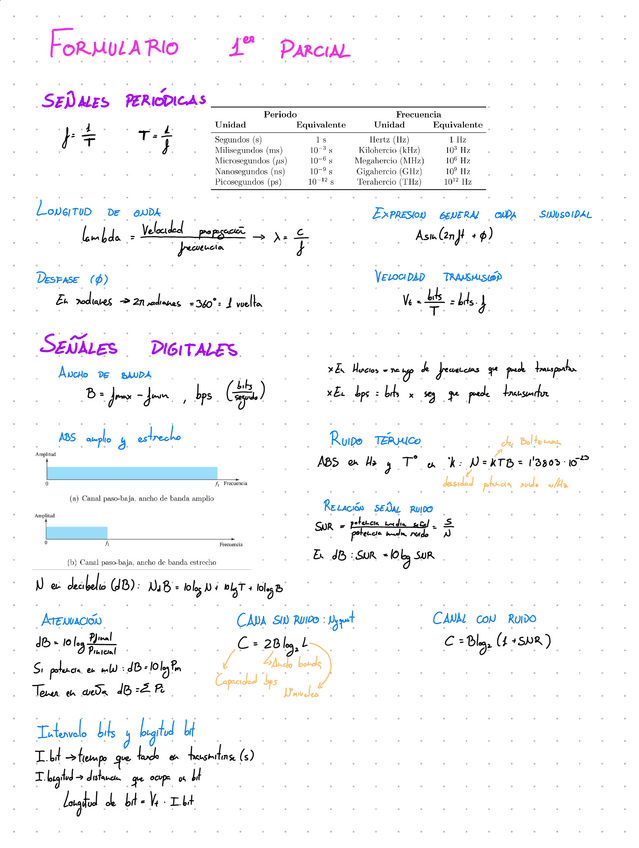 FORMULARIO 1er PARCIAL
SEÑALES PERIÓDICAS
f = 1/T T = 1/f
Periodo Frecuencia
Unidad Equivalente Unidad Equivalente
Segundos (s) 1 s Hertz (Hz) 1 Hz
Milisegundos (ms) 10⁻³ s Kilohercio (kHz) 10³ Hz
Microsegundos (μs) 10⁻⁶ s Megahercio (MHz) 10⁶ Hz
Nanosegundos (ns) 10⁻⁹ s Gigahercio (GHz) 10⁹ Hz
Picosegundos (ps) 10⁻¹² s Terahercio (THz) 10¹² Hz
LONGITUD DE ONDA
lambda = Velocidad propagación / frecuencia → λ = c/f
EXPRESION GENERAL ONDA SINUSOIDAL
A sin (2πft + ϕ)
DESFASE (ϕ)
En radianes → 2π radianes = 360° = 1 vuelta
VELOCIDAD TRANSMISIÓN
Vt = bits/T = bits · f
SEÑALES DIGITALES
ANCHO DE BANDA
B = fmax - fmin , bps (bits/segundo)
× En Hercios = rango de frecuencias que puede transportar
× En bps = bits × seg que puede transmitir
ABS amplio y estrecho
Amplitud
0 f₁ Frecuencia
(a) Canal paso-baja. ancho de banda amplio
Amplitud
0 f₁ Frecuencia
(b) Canal paso-baja. ancho de banda estrecho
RUIDO TÉRMICO
cte Boltzman
ABS en Hz y T° en °k: N = kTB = 1'3803·10⁻²³
densidad potencia ruido w/Hz
RELACIÓN SEÑAL RUIDO
SNR = potencia media señal / potencia media ruido = S/N
En dB: SNR = 10 log SNR
N en decibelio (dB): NdB = 10 log N + 10 log T + 10 log B
ATENUACIÓN
dB = 10 log Pfinal/Pinicial
Si potencia en mW: dB = 10 log Pm
CANA SIN RUIDO: Nyquist
C = 2B log₂ L
Ancho banda
Capacidad bps
Nniveles
CANAL CON RUIDO
C = B log₂ (1 + SNR)
Tener en cuenta dB = Σ Pi
Intervalo bits y longitud bit
I. bit → tiempo que tarda en transmitirse (s)
I. longitud → distancia que ocupa un bit
Longitud de bit = Vt · I. bit